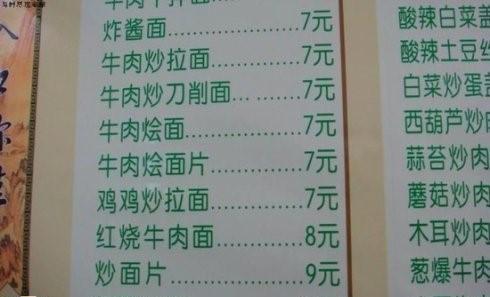 炸酱面..................7元
牛肉炒拉面............7元
牛肉炒刀削面... .......7元
牛肉烩面...............7元
牛肉烩面片............7元
鸡鸡炒拉面............7元
红烧牛肉面............8元
炒面片..................9元
酸辣白菜盖
酸辣土豆丝
白菜炒蛋盖
西葫芦炒肉
蒜苔炒肉
蘑菇炒肉
木耳炒肉
葱爆牛肉